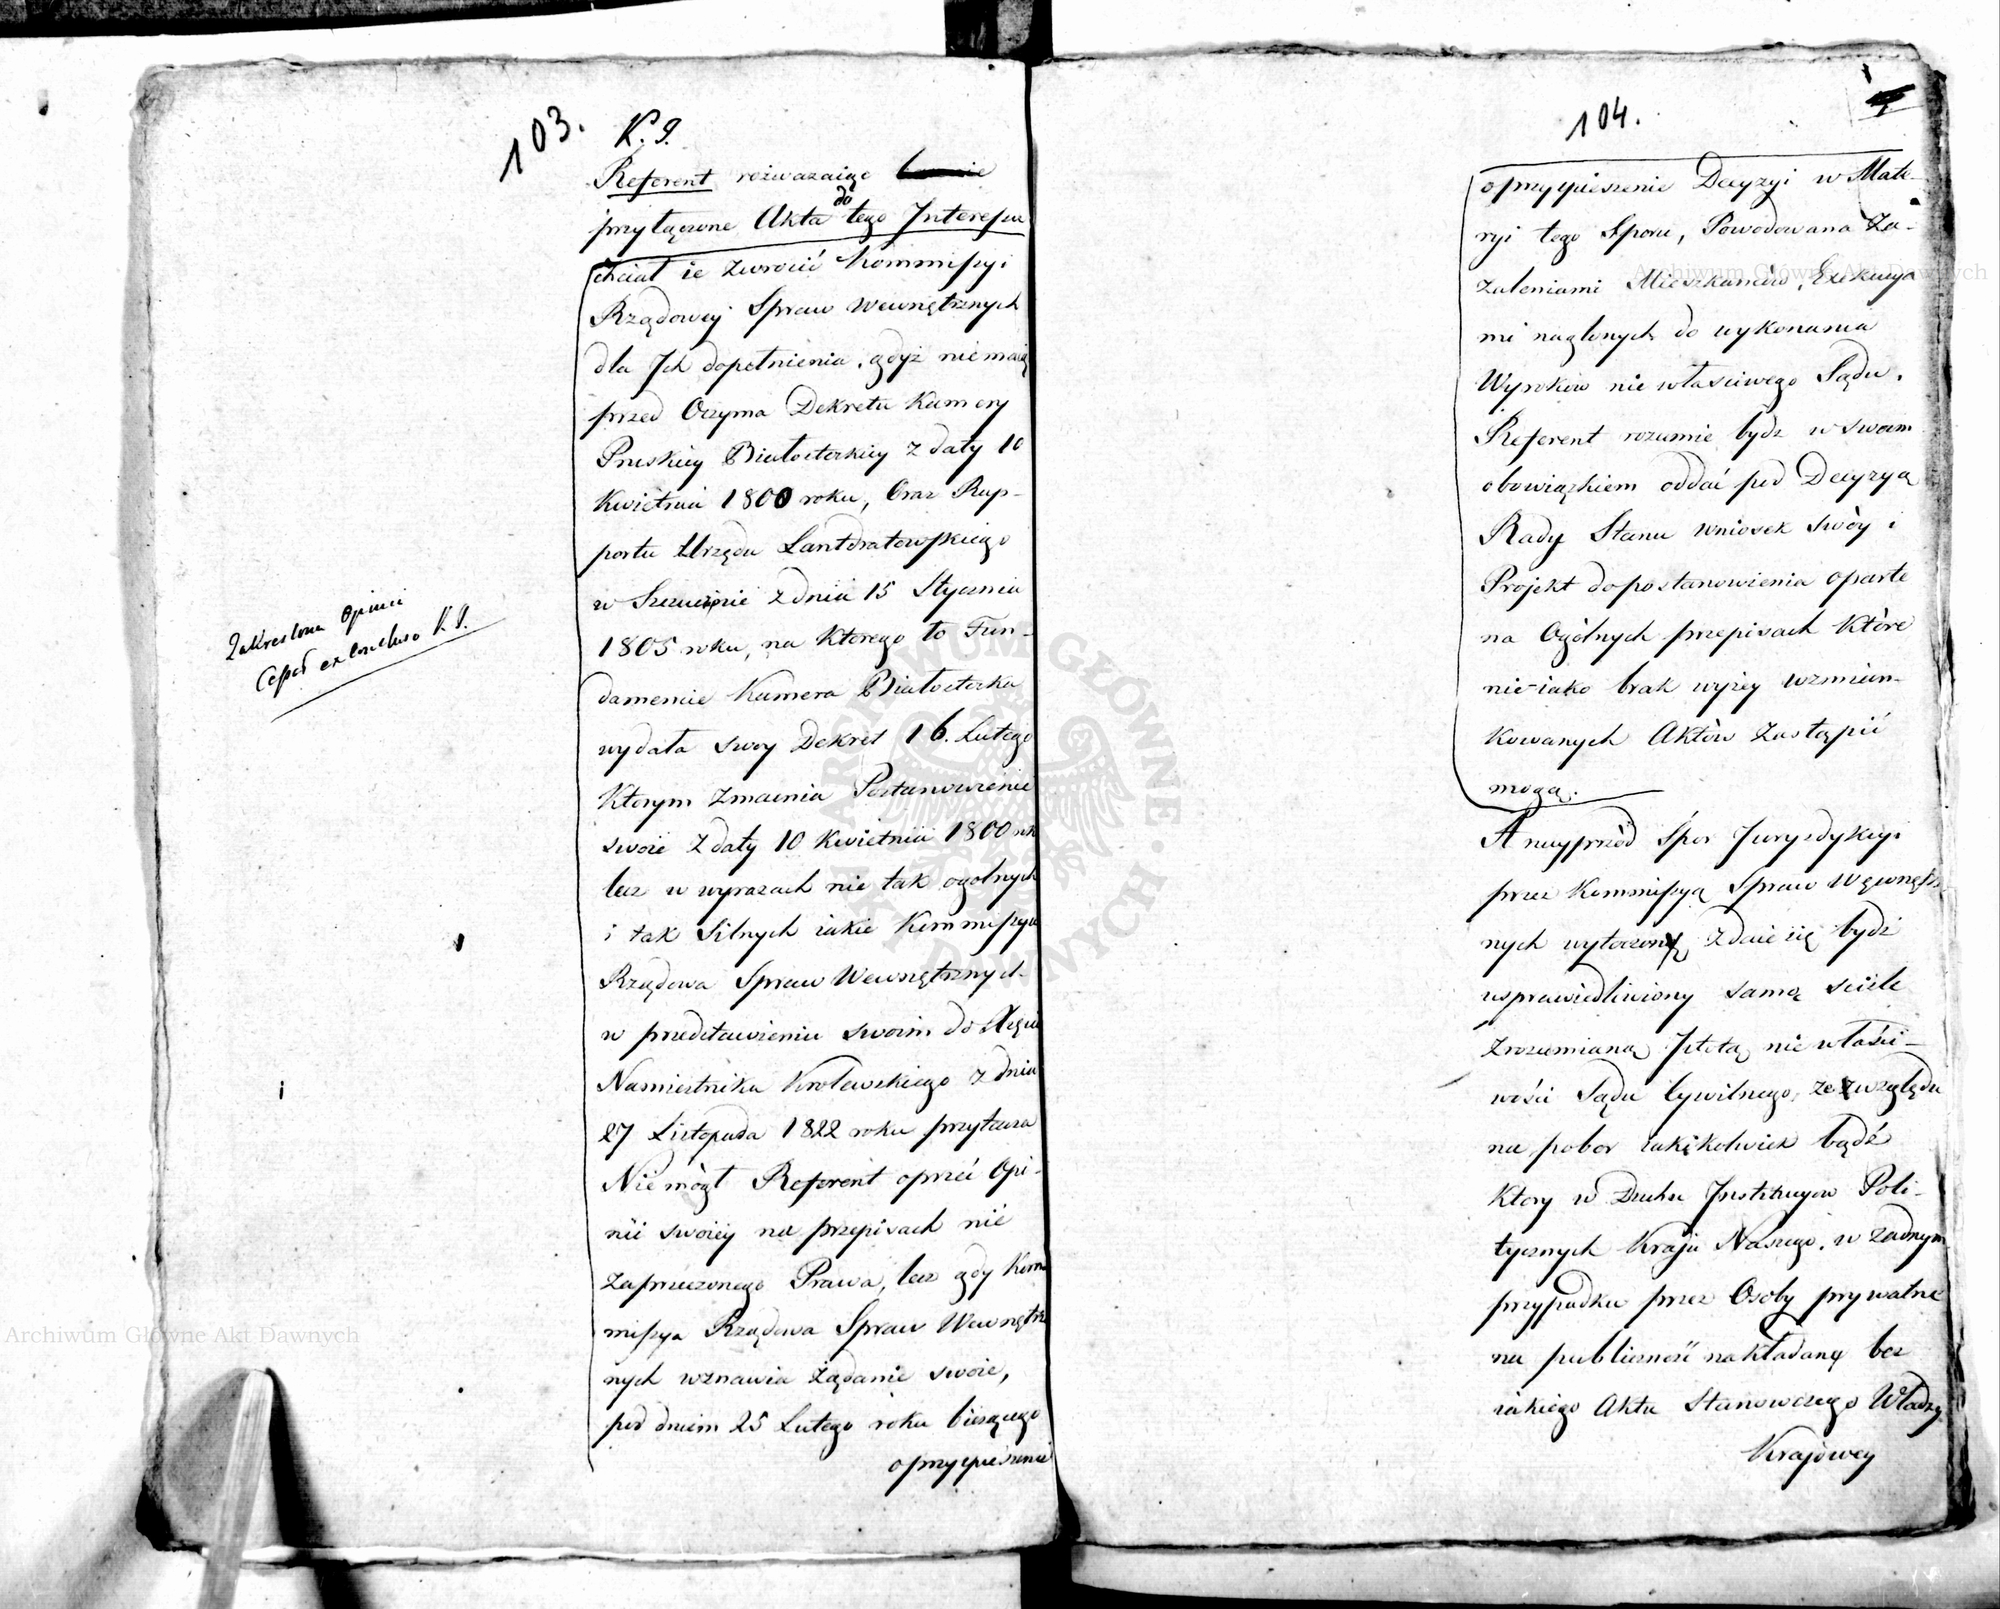 103. K. 9.
Referent rozważaiąc
przyłączone Akta do tego Interessu
chciał ie zwrócić Kommissyi
Rządowey Spraw Wewnętrznych
dla Ich dopełnienia, gdyż nie maią
przed Oczyma Dekretu Kamery
Pruskiey Białostockiey z daty 10
Kwietnia 1800 roku, Oraz Rap-
portu Urzędu Lantdratowskiego
w Szczuczynie z dnia 15 Stycznia
1805 roku, na którego to Fun-
damencie Kamera Białostocka
wydała swoy Dekret 16. Lutego
Ktorym zmacnia Postanowienie
swoie z daty 10 Kwietnia 1800 rok
lecz w wyrazach nie tak ogolnych
i tak silnych iakie Kommissya
Rządowa Spraw Wewnętrznych
w przedstawieniu swoim do Xięcia
Namiestnika Krolewskiego z dnia
27 Listopada 1822 roku przytacza
Nie mógł Referent oprzeć Opi-
nii swoiey na przepisach nie
zaprzeczonego Prawa, lecz gdy Kom
missya Rządowa Spraw Wewnętrz
nych wznawia żądanie swoie,
pod dniem 25 Lutego roku bieżącego
o przyspieszenie
Zakreślona Opinii
K. 9.
104.
o przyspieszenie Decyzyi w Mate-
ryi tego Sporu, Powodowana Za-
żaleniami Mieszkańców, Exekucya
mi naglonych do wykonania
Wyroków nie właściwego Sądu,
Referent rozumie bydź w swoim
obowiązkiem oddać pod Decyzyą
Rady Stanu wniosek swóy i
Projekt do postanowienia oparte
na Ogólnych przepisach Które
nie-iako brak wyżey wzmian-
kowanych Aktów zastąpić
mogą.
A nayprzód Spór Jurysdykcyi
przez Kommissyą Spraw Wewnętrz
nych wytoczony zdaie się bydź
usprawiedliwiony samą ściśle
zrozumianą Istotą nie właści-
wości Sądu Cywilnego, ze względu
na pobor iakikolwiek bądź
Ktory w Duchu Instytucyow Poli-
tycznych Kraju Naszego, w żadnym
przypadku przez Osoby prywatne
na publiczność nakładany bez
iakiego Aktu Stanowczego Władzy
Krajowey
Archiwum Główne Akt Dawnych
Archiwum Główne Akt Dawnych
ARCHIWUM GŁÓWNE AKT DAWNYCH